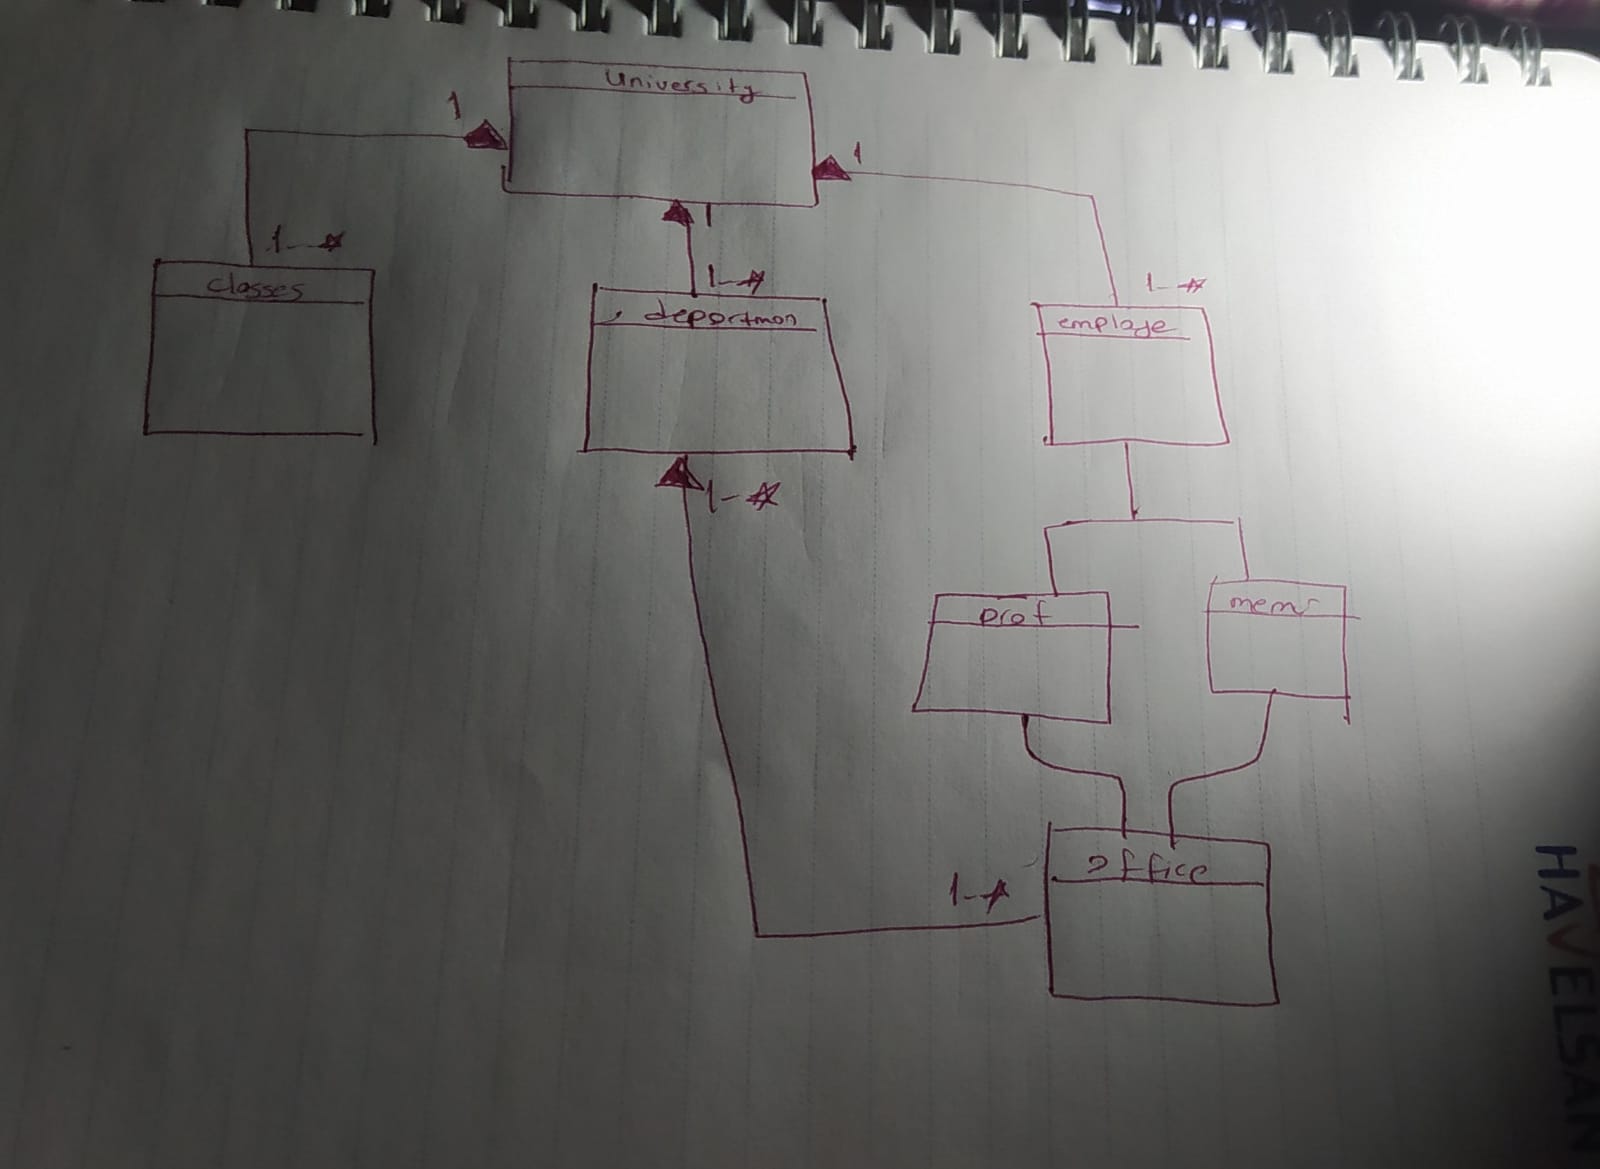 University
1
1
1
1-*
1-*
1-*
classes
departmon
employe
1-*
prof
memr
office
1-*
HAVELSAN